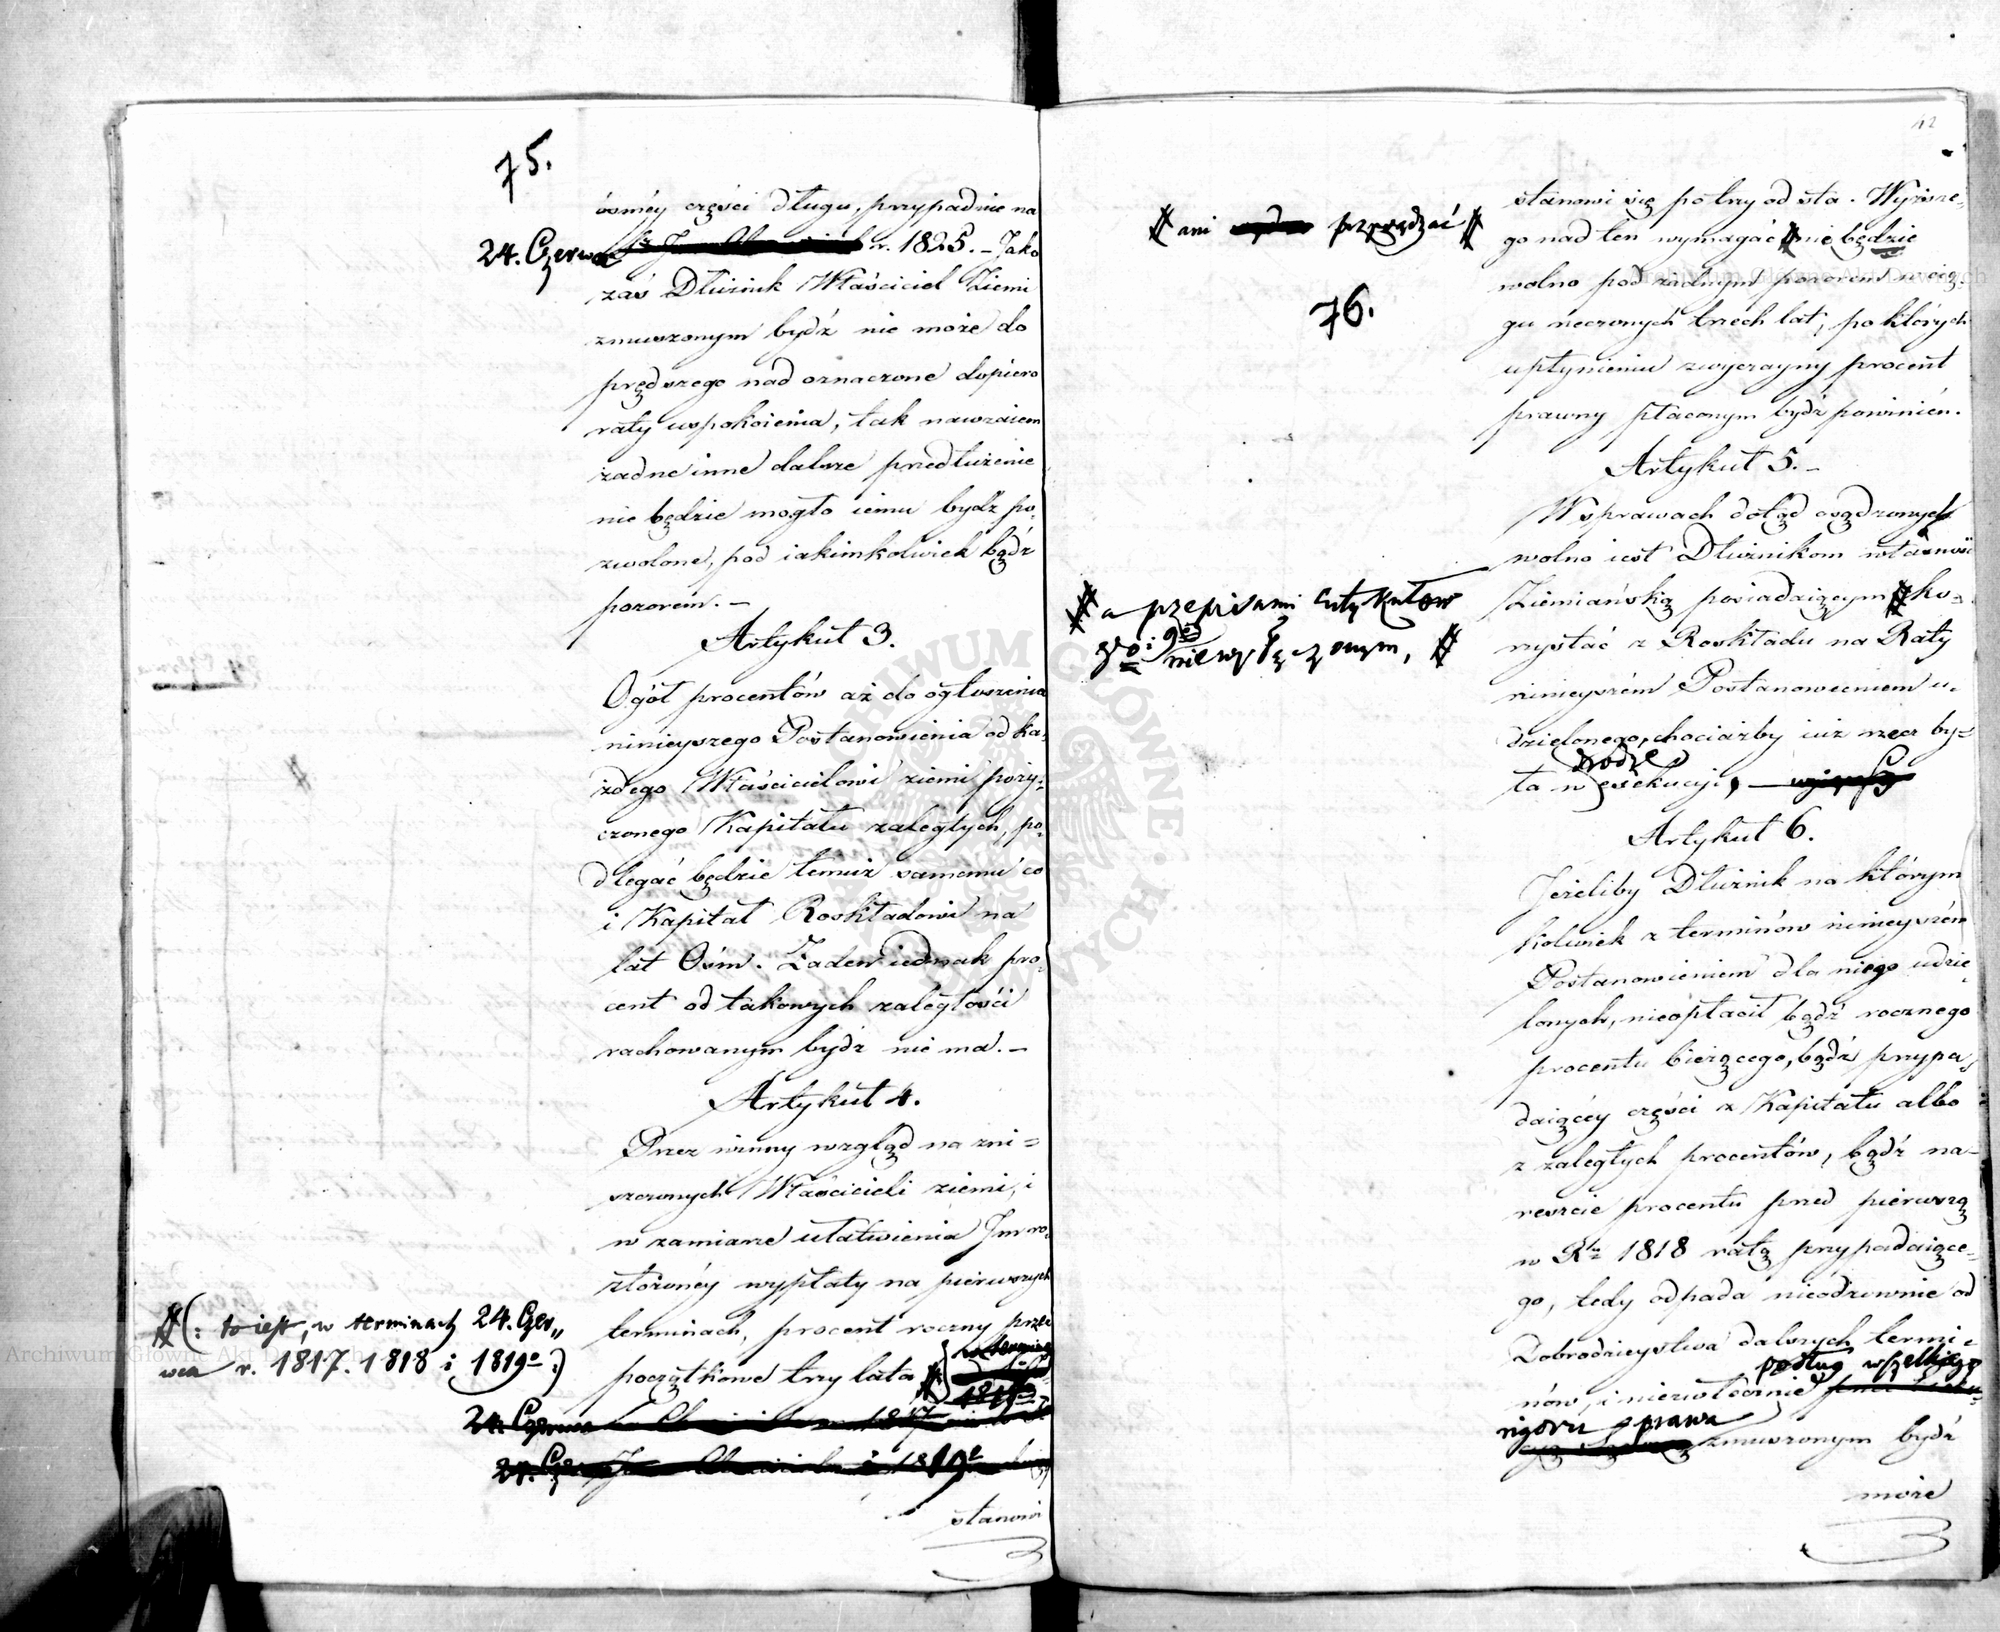 75.
ósméy części długu, przypadnie na
24. Czerwca r. 1825. – Jako
zaś Dłużnik Właściciel Ziemi
zmuszonym bydź nie może do
prędszego nad oznaczone dopiero
raty uspokoienia, tak nawzaiem
żadne inne dalsze przedłużenie
nie będzie mogło iemu bydź po-
zwolone, pod iakimkolwiek bądź
pozorem. –
Artykuł 3.
Ogół procentów aż do ogłoszenia
ninieyszego Postanowienia od ka-
żdego Właścicielowi ziemi poży-
czonego Kapitału zaległych, po-
dlegać będzie temuż samemu co
i Kapitał Roskładowi na
lat Ośm. Żaden iednak pro-
cent od takowych zaległości
rachowanym bydź nie ma. –
Artykuł 4.
Przez winny wzgląd na zni=
szczonych Właścicieli ziemi, i
w zamiarze ułatwienia Im ro-
złożonéy wypłaty na pierwszych
terminach, procent roczny przez
początkowe trzy lata
(: to iest, w terminach 24. Czer„
wca r. 1817. 1818 i 1819º :)
w terminie
1819
24. Czerwca 1817
24. Cze 1819º
stanowi
12
76.
stanowi się po trzy od sta. Wyższe-
go nad ten wymagać nie będzie
ani przyrządzać
wolno pod żadnym pozorem w cią-
gu rzeczonych trzech lat, po których
upłynieniu zwyczayny procent
prawny płaconym bydź powinien.
Artykuł 5. –
W sprawach dotąd osądzonych
wolno iest Dłużnikom własność
Ziemiańską posiadaiącym ko-
a przepisami artykułow
8º i 9º niewyłączonym,
rzystać z Roskładu na Raty
ninieyszém Postanowieniem u-
dzielonego, chociażby iuż rzecz by=
ła w drodze exekucyi,
Artykuł 6.
Jeżeliby Dłużnik na którym
kolwiek z terminów ninieyszém
Postanowieniem dla niego udzie-
lonych, nieopłacił bądź rocznego
procentu bieżącego, bądź przypa-
daiącéy części z Kapitału albo
z zaległych procentów, bądź na-
reszcie procentu przed pierwszą
w Rku 1818 ratą przypadaiące-
go, tedy odpada nieodzownie od
Dobrodzieystwa dalszych termi=
nów, i niezwłocznie podług wszelkiego
rigoru prawa zmuszonym bydź
może
Archiwum Główne Akt Dawnych
Archiwum Główne Akt Dawnych
ARCHIWUM GŁÓWNE AKT DAWNYCH